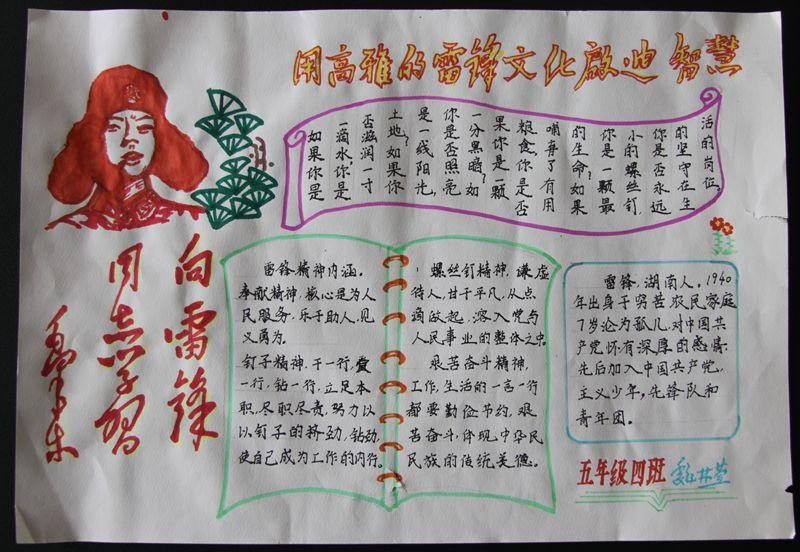 用高雅的雷锋文化启迪智慧
如果你是
一滴水,你是
否滋润一寸
土地?如果你
是一线阳光,
你是否照亮
一分黑暗?如
果你是一颗
粮食,你是否
哺育了有用
的生命?如果
你是一颗最
小的螺丝钉,
你是否永远
的坚守在生
活的岗位
向雷锋
同志学习
毛泽东
雷锋精神内涵。
奉献精神,核心是为人
民服务,乐于助人,见
义勇为。
钉子精神,干一行,爱
一行,钻一行,立足本
职,尽职尽责,努力以
以钉子的挤劲,钻劲,
使自己成为工作的内行。
螺丝钉精神,谦虚
待人,甘于平凡,从点
滴做起,溶入党与
人民事业的整体之中。
艰苦奋斗精神,
工作,生活的一言一行
都要勤俭节约,艰
苦奋斗,体现中华民
民族的传统美德。
雷锋,湖南人。1940
年出身于贫苦农民家庭
7岁沦为孤儿,对中国共
产党怀有深厚的感情.
先后加入中国共产党,
主义少年,先锋队和
青年团。
五年级四班